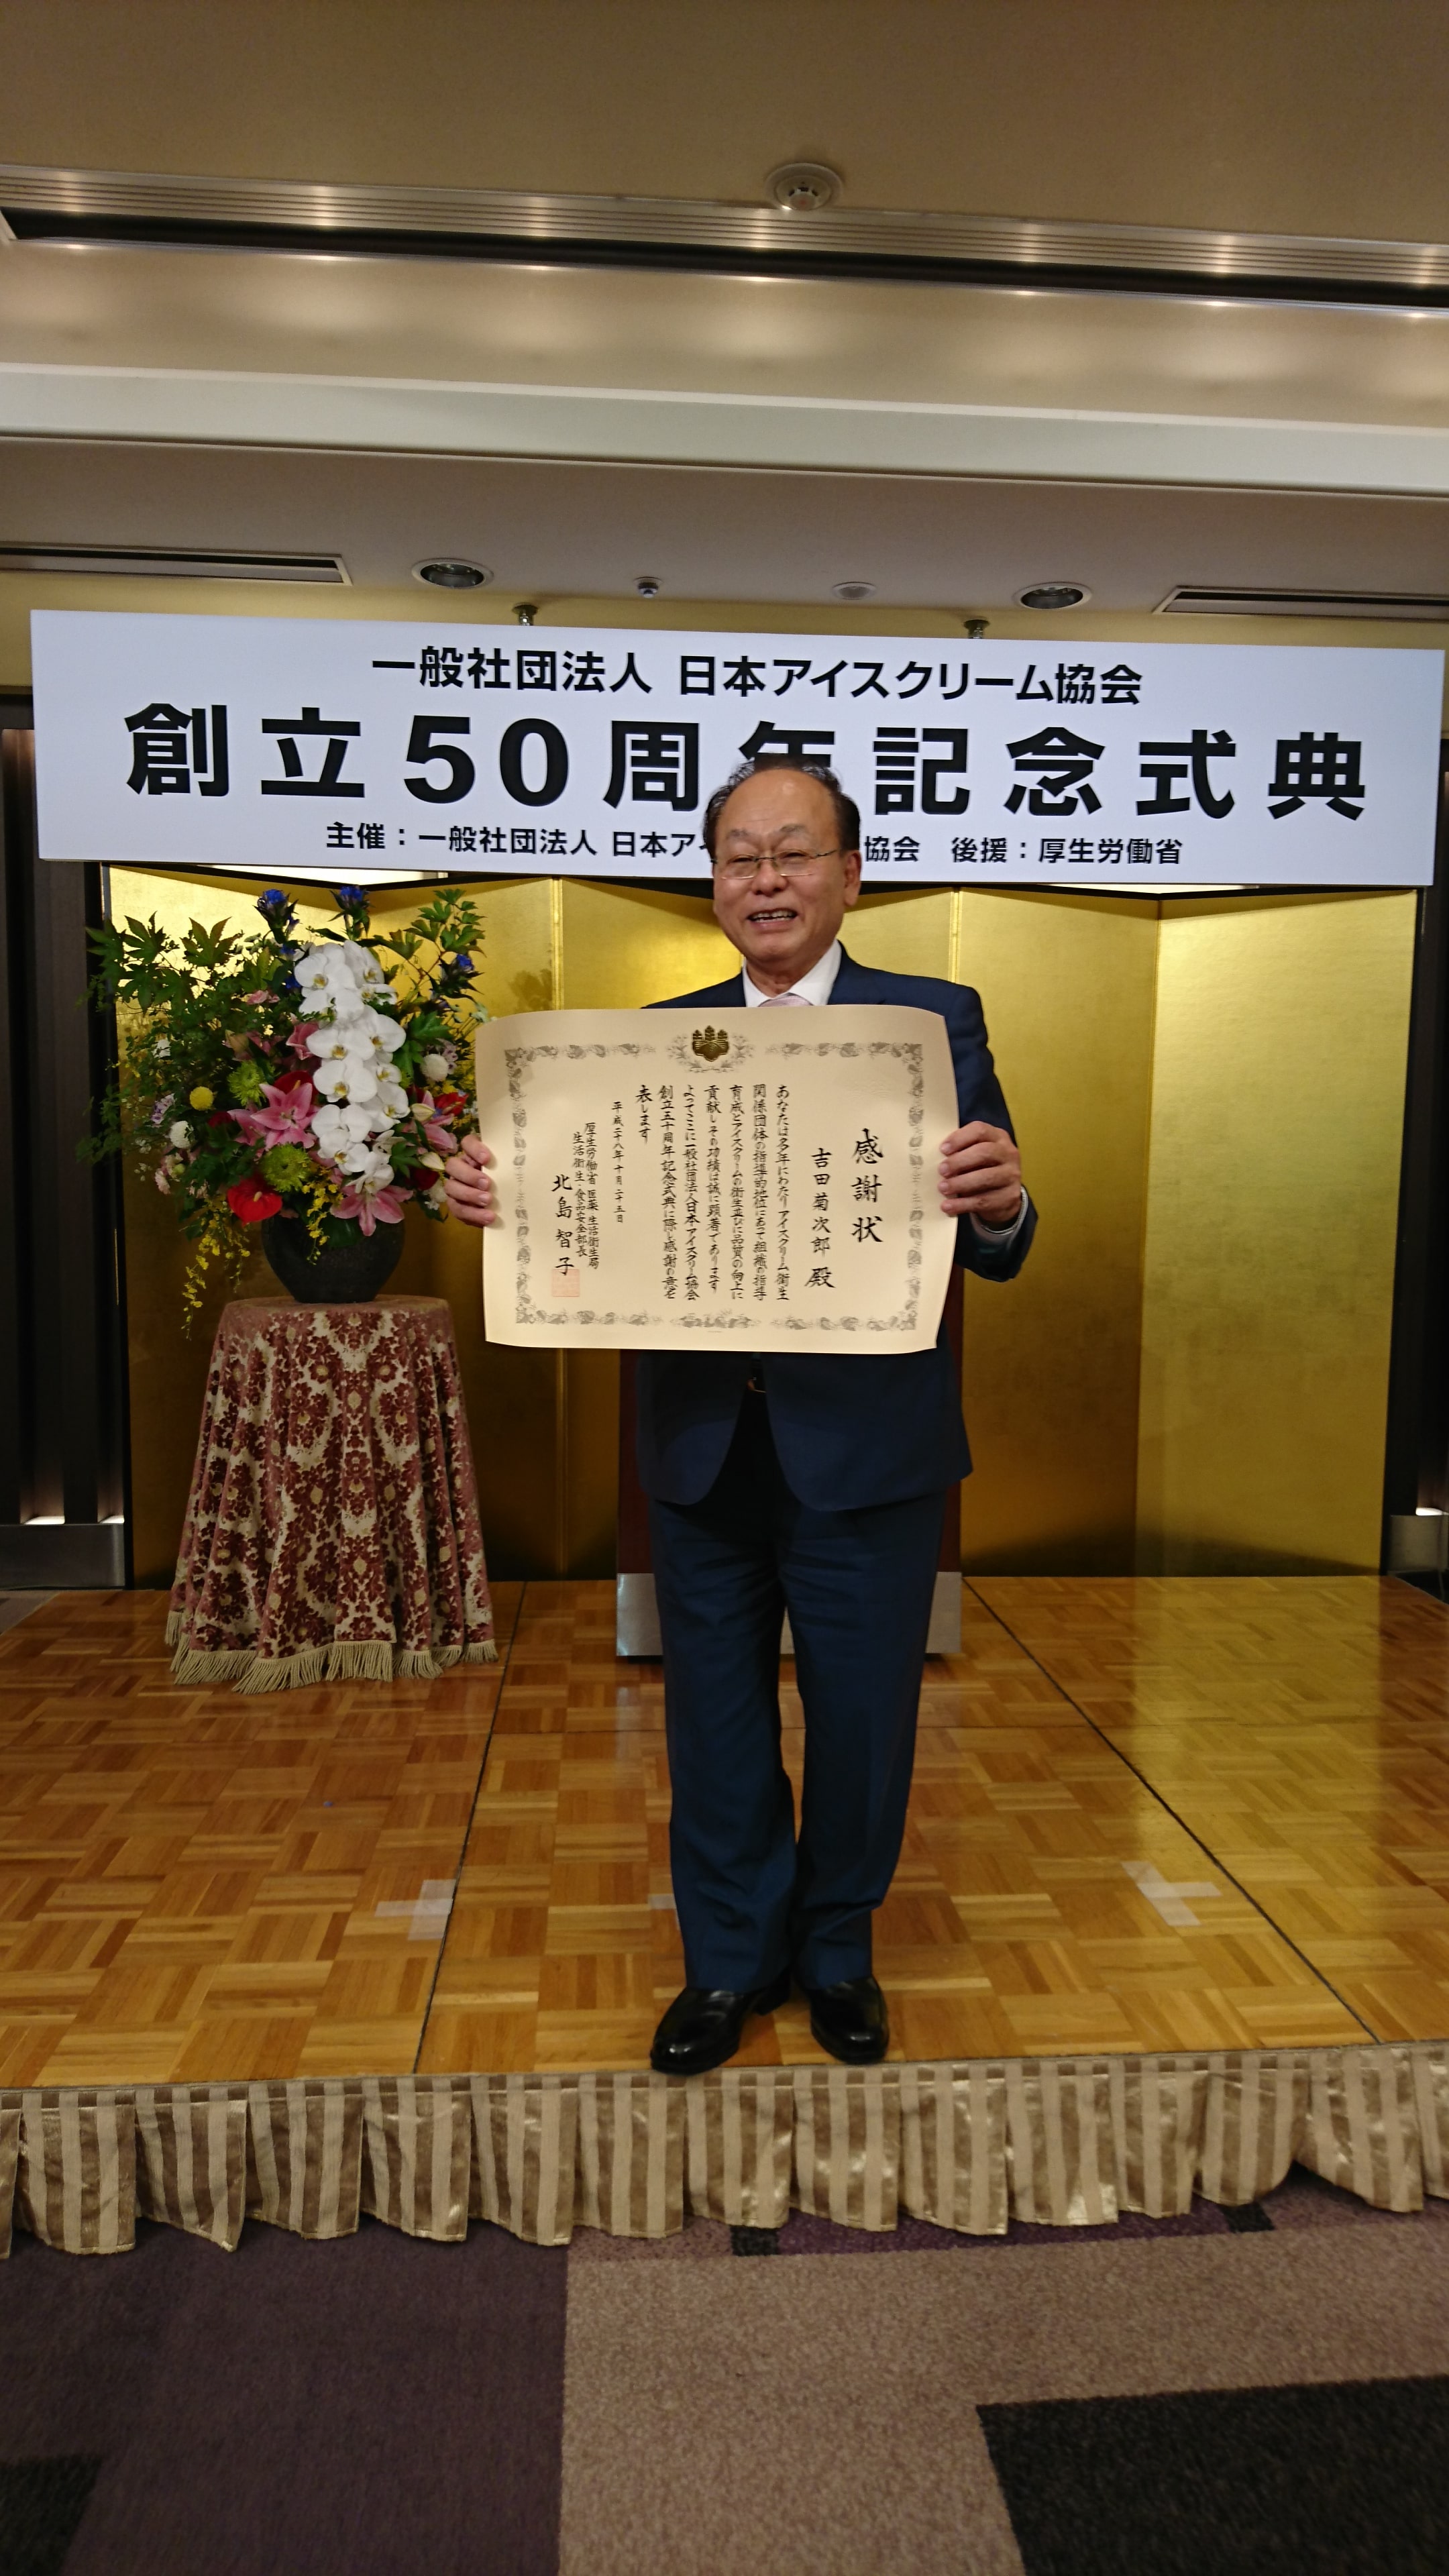 一般社団法人 日本アイスクリーム協会
創立50周年記念式典
主催：一般社団法人 日本ア 協会 後援：厚生労働省
感謝状
吉田菊次郎 殿
あなたは多年にわたりアイスクリーム衛生
関係団体の指導的地位にあって組織の指導
育成とアイスクリームの衛生並びに品質の向上に
貢献しその功績は誠に顕著であります
よってここに一般社団法人日本アイスクリーム協会
創立五十周年記念式典に際し感謝の意を
表します
平成二十八年十月二十五日
厚生労働省 医薬・生活衛生局
生活衛生・食品安全部長
北島智子